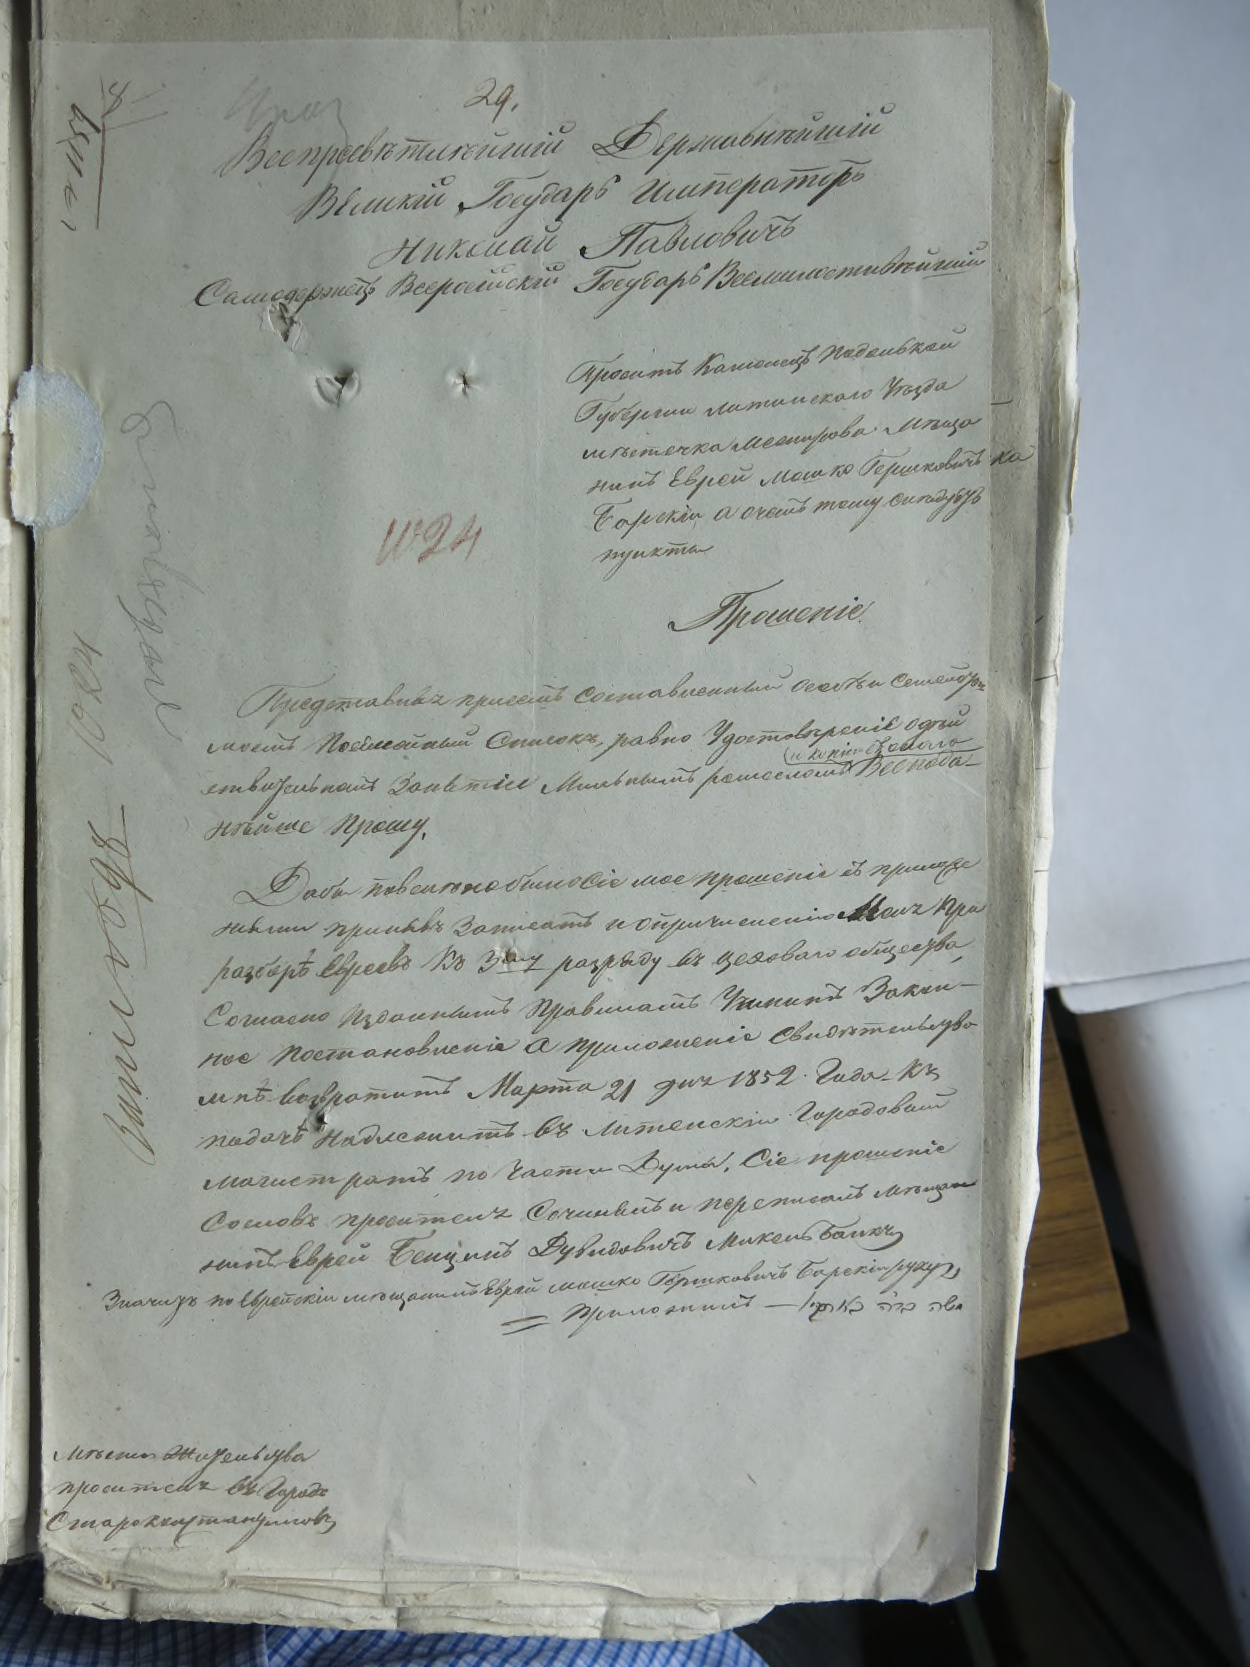 29.
Всепресвѣтлѣйшій Державнѣйшій
Великій Государь Императоръ
Николай Павловичъ
Самодержецъ Всероссійскій Государь Всемилостивѣйшій
Проситъ Каменецъ Подольской
Губерніи Литинскаго Уѣзда
мѣстечка Межирова Мѣща
нинъ Еврей Мошко Гершковичъ
Барскій а о чемъ тому слѣдуютъ
пункты
№24
Прошеніе.
Представляя присемъ составленный о семъ и семейств
Посемейный Списокъ, равно Удостовѣреніе о дѣй
ствительномъ Занятіи ремесломъ (и копію онаго) Всеподда-
нѣйше Прошу,
Дабы повелѣно было сіе мое прошеніе съ приложе
ніями принявъ Записать и о причисленіи Меня При
разборѣ Евреевъ Къ 3му разряду въ цеховаго общества,
Согласно Изданнымъ Правиламъ Учинить Закон-
ное постановленіе а приложеніе Свидѣтельство
мнѣ возвратить Марта 21 дня 1852 Года Къ
подачѣ надлежитъ въ Литинскій Городовый
магистратъ по части Думы. Сіе прошеніе
Сословъ просителя Сочинялъ и переписалъ мѣщан
нинъ Еврей Бенционъ Дувидовичъ
Значитъ по Еврейскіи мѣщанинъ Еврей Мошко Гершковичъ Барскій руку
= Приложилъ — משה בר"ה בארסקי
Мѣсто Жительства
просителя въ Городе
Староконстантиновѣ